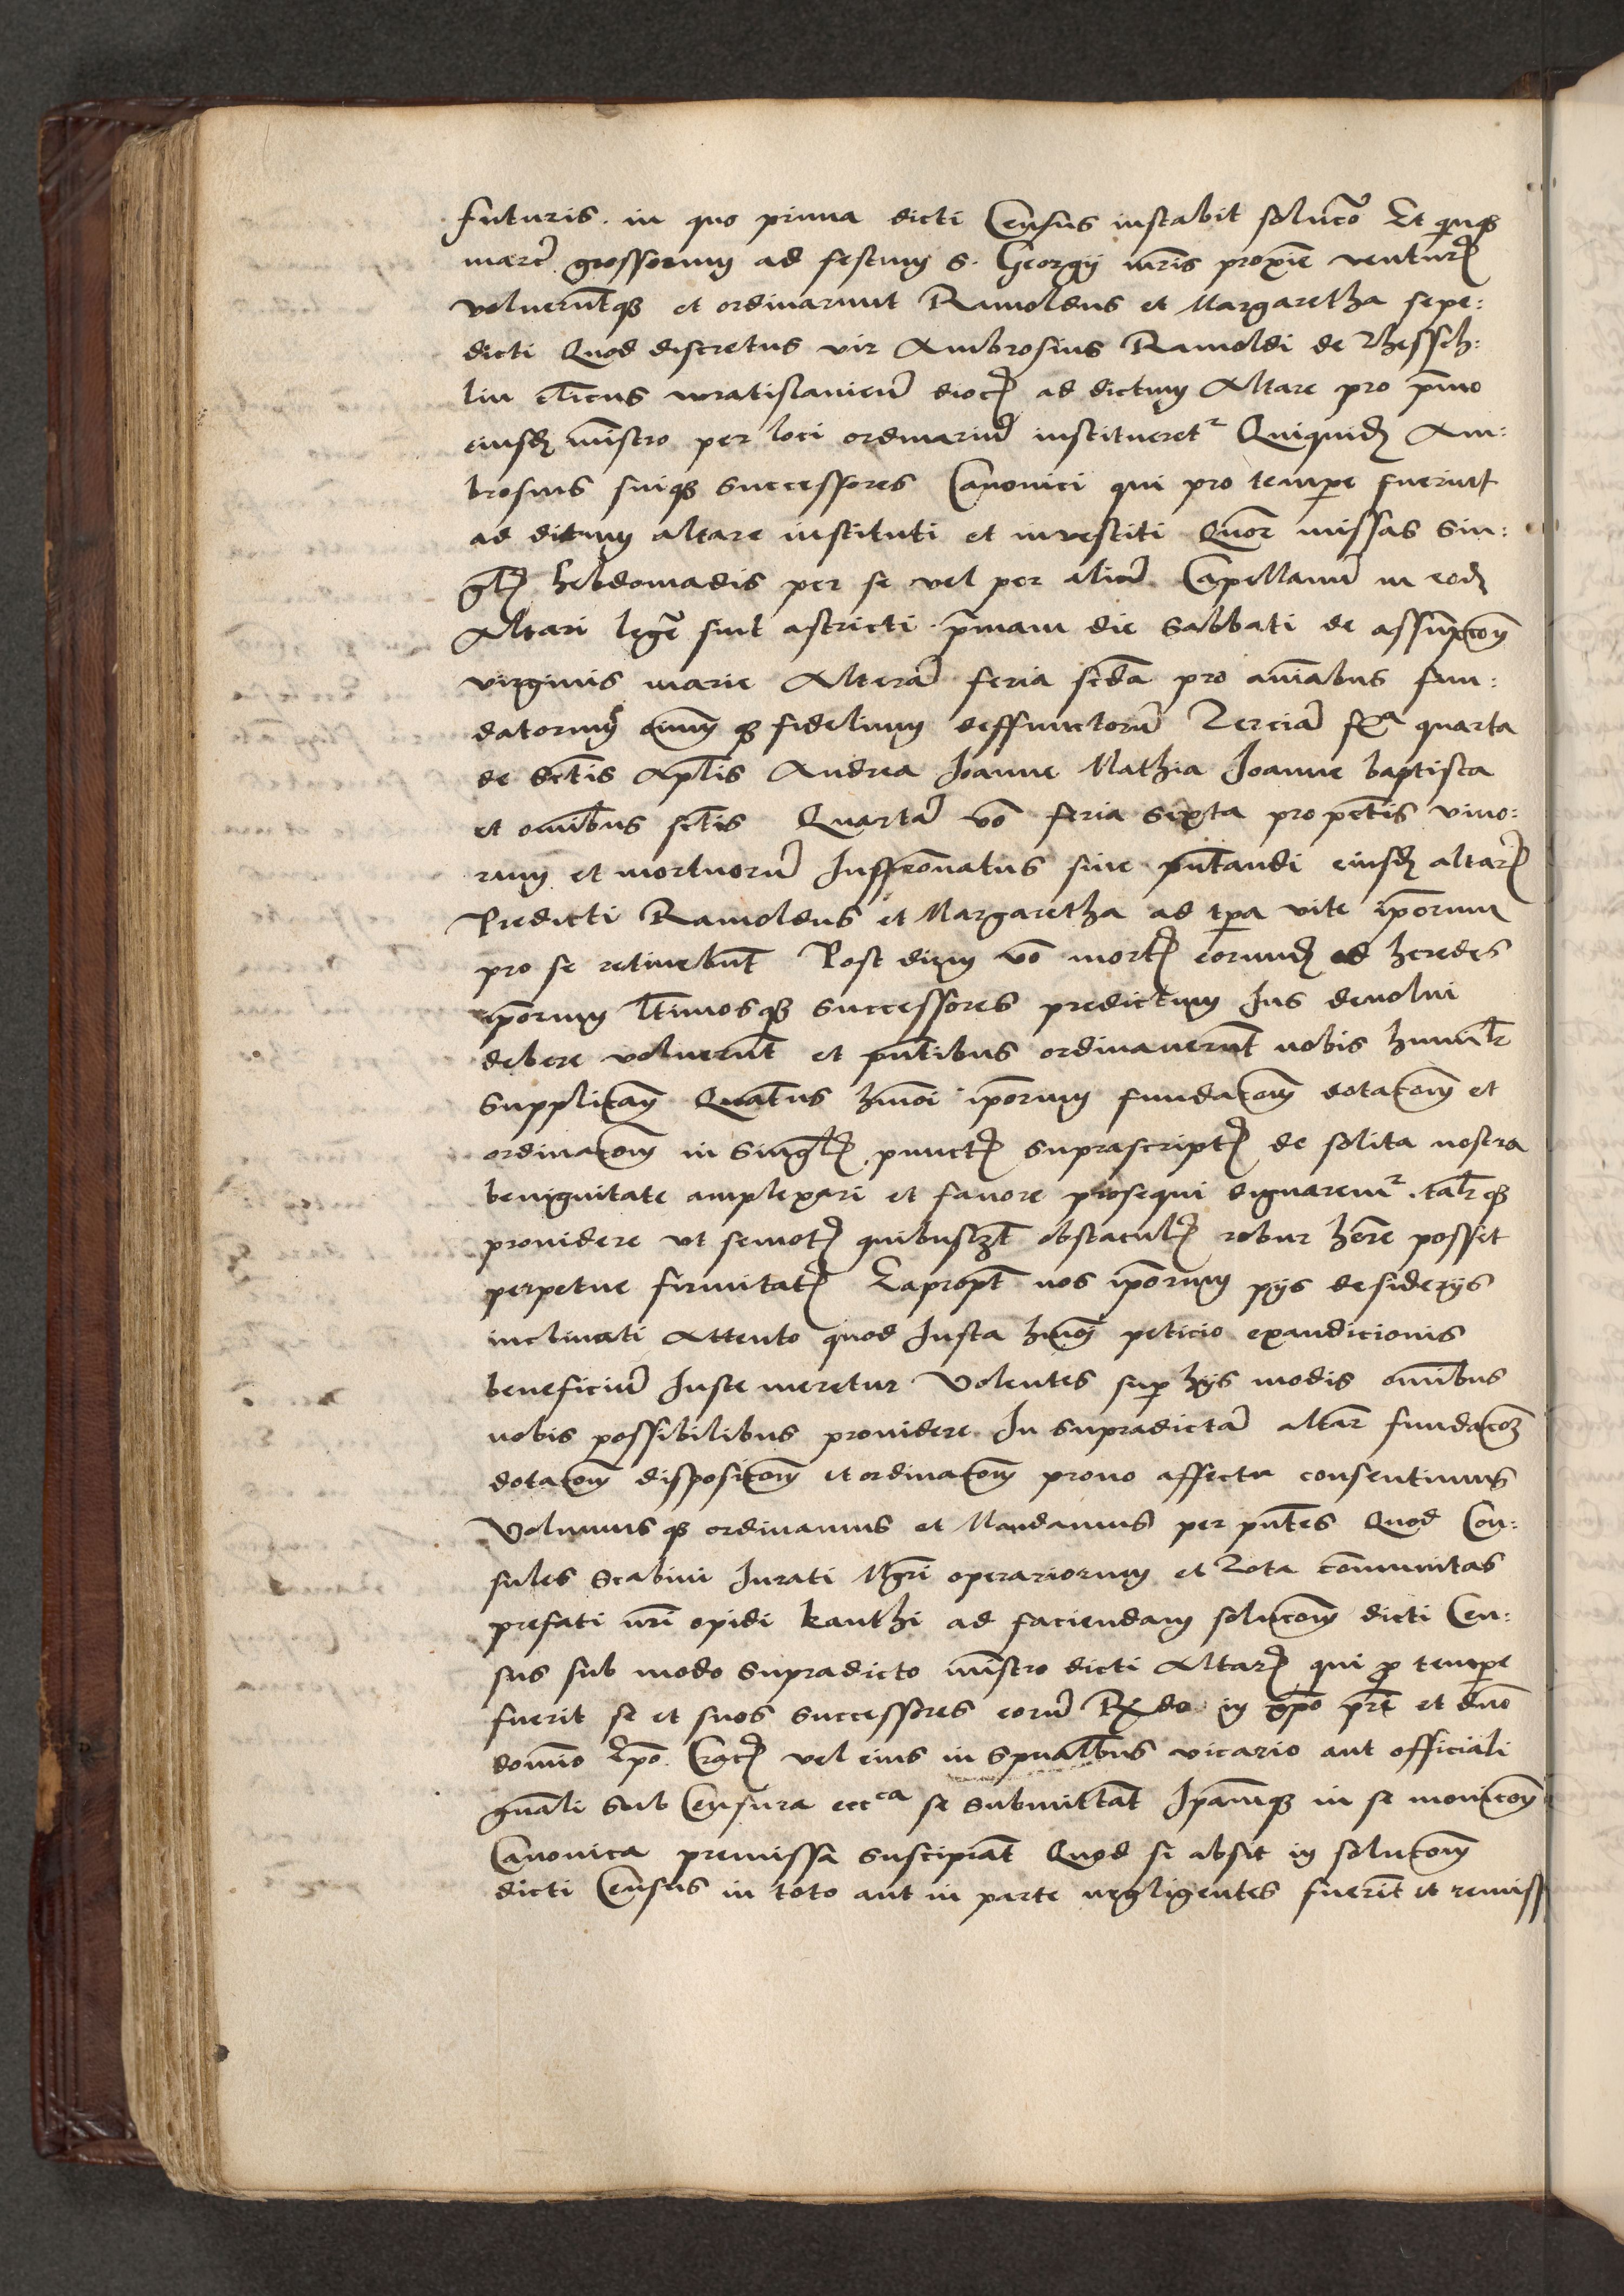 futuris. in quo prima dicti Census instabit soluco᷃ Et quinqꜫ
marc̃ grossorum ad festum S. Georgij mr̃is proxie᷃ venturꝭ
voluerũtqꜫ et ordinarunt Ramoldus et Margaretha sepe:
dicti Quod discretus vir Ambrosius Ramoldi de Thessch:
lin cl̃icus wratislauien̄ diocꝭ ad dictum Altare pro pͥmo
eiusd̃ mĩstro per loci ordinariũ institueretᷣ Quiquid̃ Am:
brosius suiqꜫ successores Canonici qui pro tempe fuerint
ad dictum altare instituti et inuestiti Quor missas sin:
gl̃ꝭ hebdomadis per se vel per aliũ Capellanũ in eod̃
Altari leg̃e sint astricti . p̃mam die Sabbati de assũpcom̃
virginis marie Alterã feria scd̃a pro aĩabus fun:
datorum oĩum qꜫ fidelium deffunctorũ Terciã fͣ quarta
de sctĩs Aplĩs Andrea Joanne Mathia Joanne baptista
et om̃ibus sctĩs Quartã vo᷃ feria sexta pro pct̃is viuo:
rum et mortuorũ Juspr̃onatus siue pñtandi eiusd̃ altarꝭ
Predicti Ramoldus et Margaretha ad tp̃a vite ip̃orum
pro se retinebũt Post diem vo᷃ mortꝭ eorund̃ ad heredes
ip̃orum l̃timosqꜫ successores predictum Jus deuolui
debere voluerũt et pñtibus ordinauerũt nobis humil̃r
Supplican̄ Quat̃us hmõi ip̃orum fundacom̃ dotacom̃ et
ordinacom̃ in singl̃ꝭ punctꝭ suprascriptꝭ de solita nostra
benignitate amplexari et fauore prosequi dignaremᷣ . tal̃r qꜫ
prouidere vt semotꝭ quibuscũt obstaculꝭ robur hẽre posset
perpetue firmitatꝭ Eapropt̃ nos ip̃orum pijs desiderijs
inclinati Attento quod Justa hmõi peticio exaudicionis
beneficiũ Juste meretur Volentes sup̱ hijs modis om̃ibus
nobis possibilibus prouidere In supradictã altar̃ fundacoe᷃
dotacom̃ disposicom̃ et ordinacom̃ prono affectu consentimus
Volumus qꜫ ordinamus et Mandamus per pñtes Quod Con:
sules Scabini Jurati Mgr̃i operariorum et Tota com̃unitas
prefati nr̃i opidi kanthi ad faciendam solucom̃ dicti Cen:
sus sub modo supradicto mĩstro dicti Altarꝭ qui ꝓ tempe
fuerit se et suos successores eorũ Rᷤdo in xp̃o pr̃e et dño
domĩo Ep̃o Cꝭ vel eius in Spũalibus vicario aut officiali
gñali Sub Censura ecc̃ca se submittãt Ip̃amqꜫ in se monicom̃
Canonica premissa suscipiãt Quod si absit in solucom̃
dicti Census in toto aut in parte negligentes fuerĩt et remiss